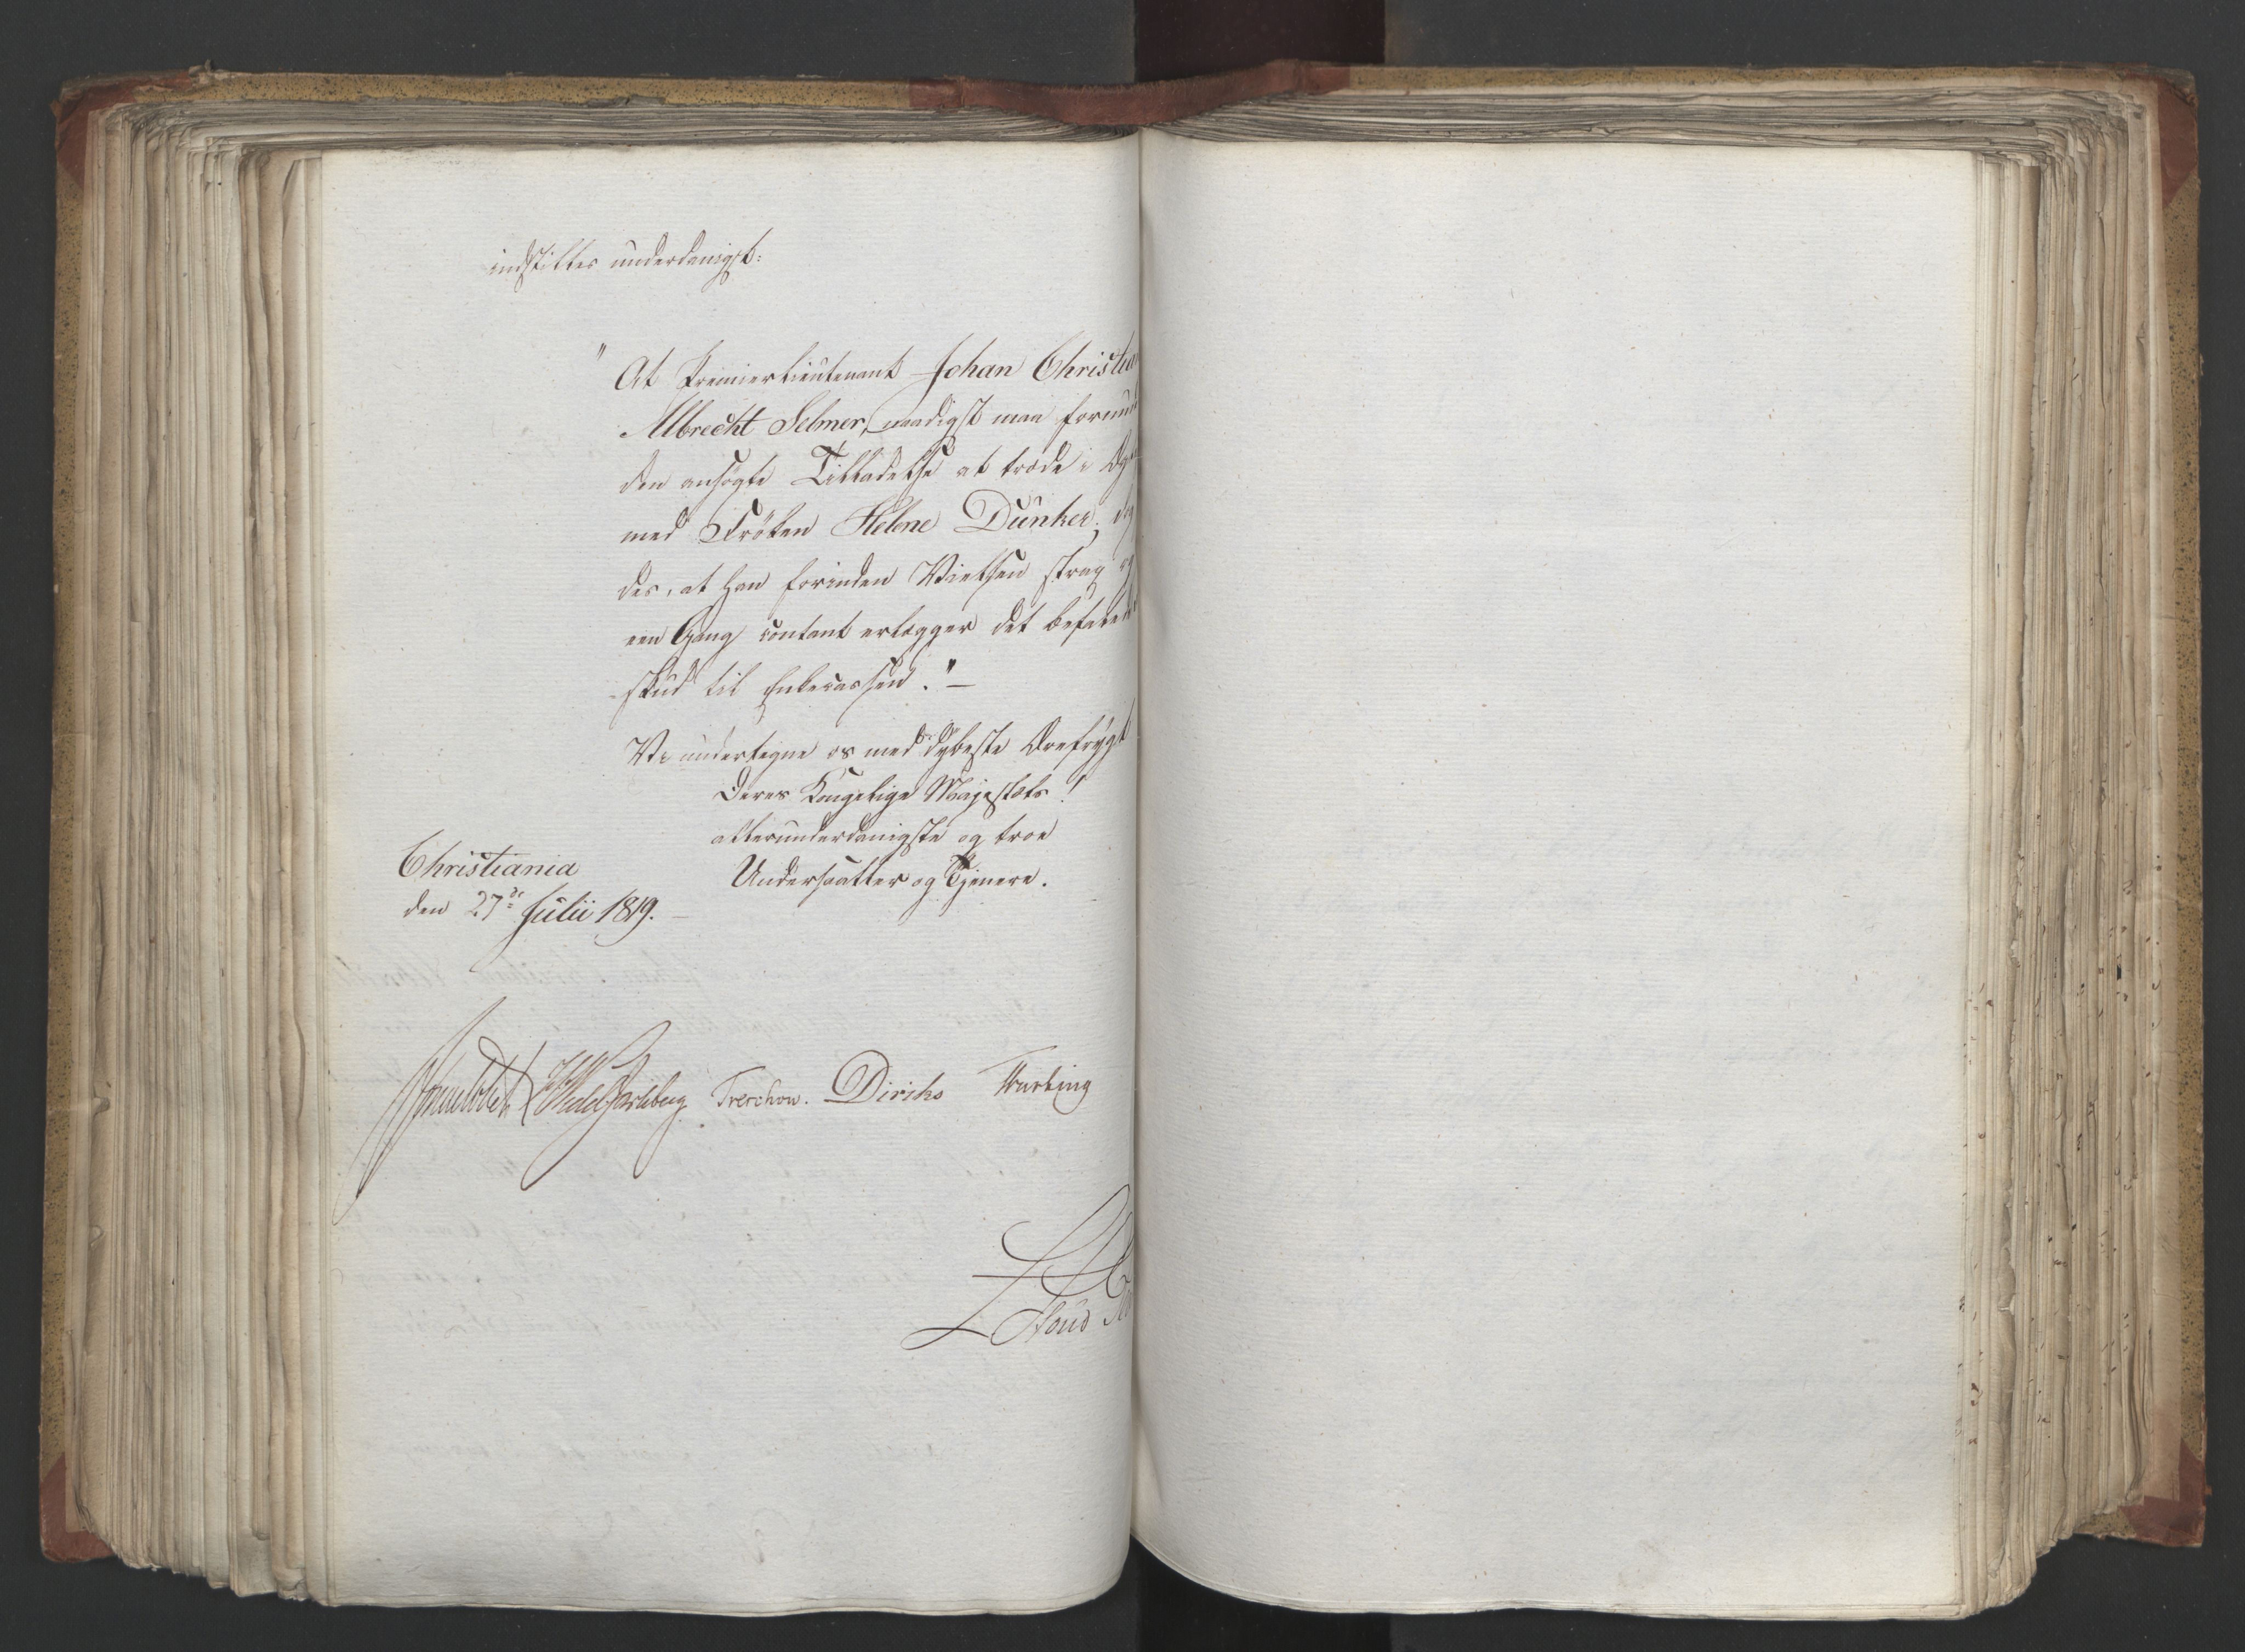 indstilles underdanigst:
" At Premierlieutenant Johan Christia
Albrecht Selmer, naadigst maa forun
den ansøgte Tilladelse at træde i Æg
med Frøken Helene Dunker, dog
des, at han forinden Vielsen strax og
een Gang contant erlægger det befalede
skud til Enkecassen." —
Vi undertegne os med dybeste Ærefrygt
Deres Kongelige Majestæts!
allerunderdanigste og troe
Undersaatter og Tjenere.
Christiania
den 27de Julii 1819. —
Wedel Jarlsberg Treschow. Diriks Motzfeldt